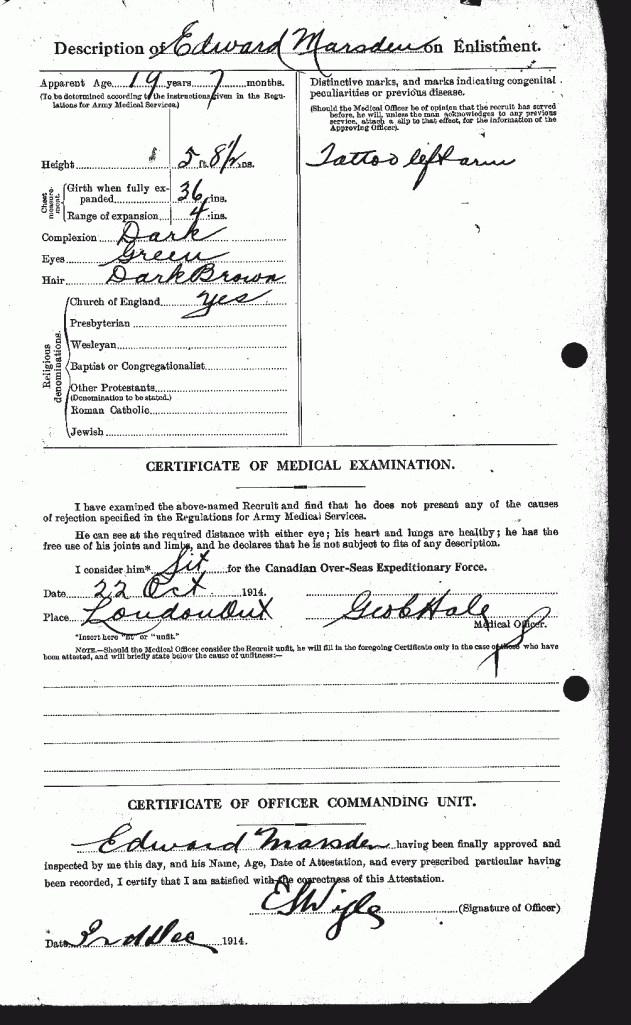 Description of Edward Marsden on Enlistment.
Apparent Age 19 years 7 months.
(To be determined according to the instructions given in the Regu-
lations for Army Medical Services.)
Height 5 ft. 8½ ins.
Chest measure-
ment.
Girth when fully ex-
panded 36 ins.
Range of expansion 4 ins.
Complexion Dark
Eyes Green
Hair Dark Brown
Religious
denominations.
Church of England yes
Presbyterian
Wesleyan
Baptist or Congregationalist
Other Protestants
(Denomination to be stated.)
Roman Catholic
Jewish
Distinctive marks, and marks indicating congenital
peculiarities or previous disease.
(Should the Medical Officer be of opinion that the recruit has served
before, he will, unless the man acknowledges to any previous
service, attach a slip to that effect, for the information of the
Approving Officer).
Tattoo left arm
CERTIFICATE OF MEDICAL EXAMINATION.
I have examined the above-named Recruit and find that he does not present any of the causes
of rejection specified in the Regulations for Army Medical Services.
He can see at the required distance with either eye; his heart and lungs are healthy; he has the
free use of his joints and limbs, and he declares that he is not subject to fits of any description.
I consider him* fit for the Canadian Over-Seas Expeditionary Force.
Date 22 Oct 1914.
Place London Ont
Geo C Hale
Medical Officer.
*Insert here "fit" or "unfit."
NOTE.—Should the Medical Officer consider the Recruit unfit, he will fill in the foregoing Certificate only in the case of those who have
been attested, and will briefly state below the cause of unfitness:—
CERTIFICATE OF OFFICER COMMANDING UNIT.
Edward Marsden having been finally approved and
inspected by me this day, and his Name, Age, Date of Attestation, and every prescribed particular having
been recorded, I certify that I am satisfied with the correctness of this Attestation.
ESWigle (Signature of Officer)
Date 3rd Dec 1914.